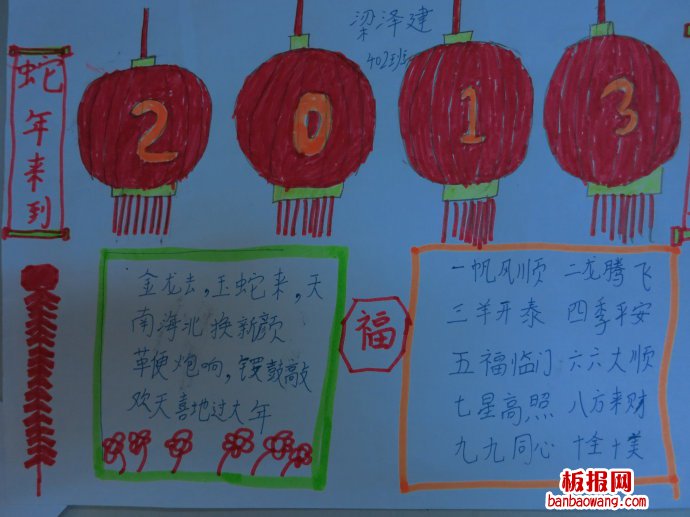 梁泽建
402班
2013
蛇年来到
金龙去,玉蛇来,天
南海北换新颜
鞭炮响,锣鼓敲
欢天喜地过大年
福
一帆风顺 二龙腾飞
三羊开泰 四季平安
五福临门 六六大顺
七星高照 八方来财
九九同心 十全十美
板报网
banbaowang.com